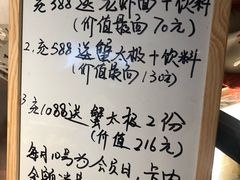 充388送龙虾面+饮料
(价值最高70元)
2.充588送蟹太极+饮料
(价值最高130元)
3.充1088送蟹太极2份
(价值216元)
每月10号为会员日,卡内